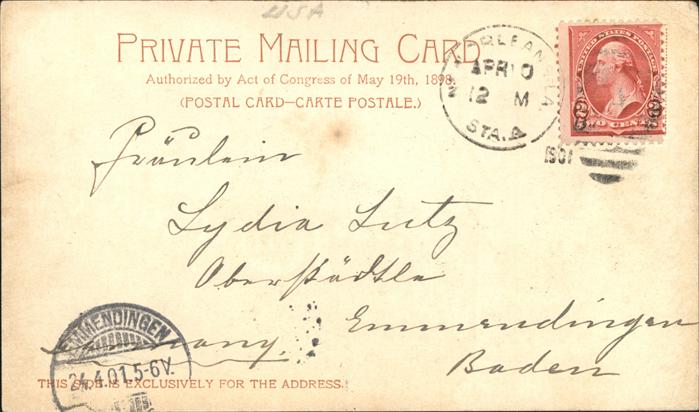 USA
PRIVATE MAILING CARD.
Authorized by Act of Congress of May 19th, 1898.
(POSTAL CARD—CARTE POSTALE.)
ORLEANS, LA
APR 10
12 M
STA. A
1901
UNITED STATES POSTAGE
TWO CENTS
Fräulein
Lydia Lutz
Oberstädtle
Emmendingen
Germany.
Baden
EMMENDINGEN
24.4.01.5-6V.
THIS SIDE IS EXCLUSIVELY FOR THE ADDRESS.